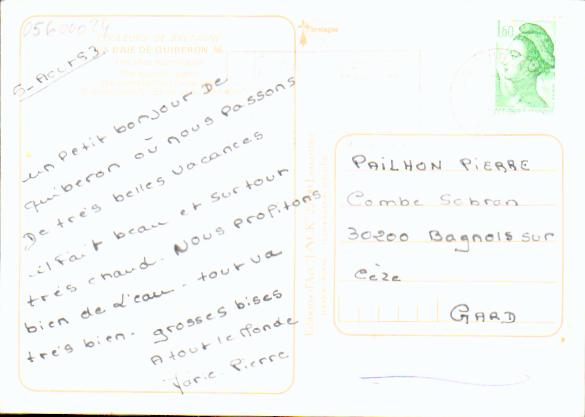 05600024
COULEURS DE BRETAGNE
LA BAIE DE QUIBERON
5-Août 83
un petit bonjour De
quiberon où nous passons
De très belles vacances
il fait beau et surtout
très chaud. Nous profitons
bien de l'eau. tout va
très bien. grosses bises
A tout le Monde
Marie-Pierre
Bretagne
1,60
PAILHON PIERRE
Combe Sabran
30200 Bagnols sur
Cèze
GARD